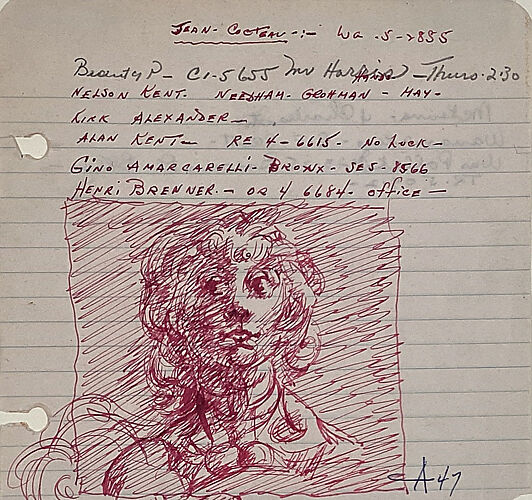 JEAN - COCTEAU -:- WA -5-2855
Beauty P - C1-5655 Mr Harkins - Thurs. 2:30
NELSON KENT. NEEDHAM - GROHMAN - MAY -
KIRK ALEXANDER -
ALAN KENT - RE 4-6615. - NO LUCK -
GINO AMARCARELLI - BRONX - SE5-8566
HENRI BRENNER. - OR 4 6684 office -
A 47